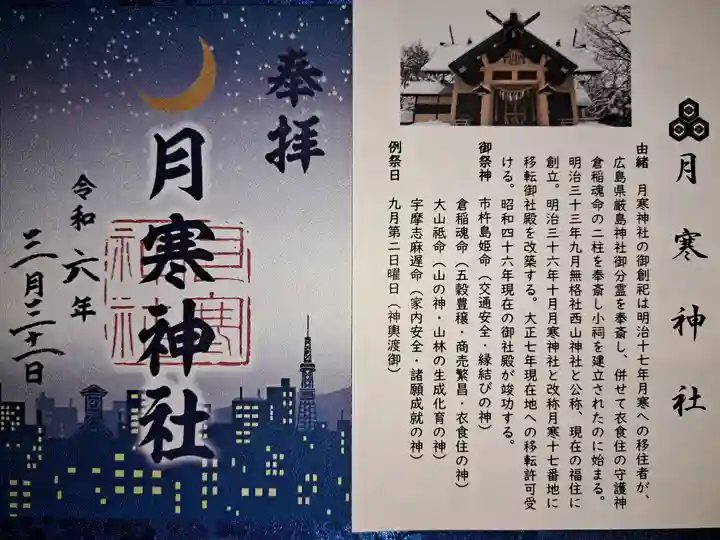 奉拝
月寒神社
令和六年
三月二十一日
月寒神社
由緒 月寒神社の御創祀は明治十七年月寒への移住者が、
広島県厳島神社御分霊を奉斎し、併せて衣食住の守護神
倉稲魂命の二柱を奉斎し小祠を建立されたのに始まる。
明治三十三年九月無格社西山神社と公称、現在の福住に
創立。明治三十六年十月月寒神社と改称月寒十七番地に
移転御社殿を改築する。大正七年現在地への移転許可受
ける。昭和四十六年現在の御社殿が竣功する。
御祭神 市杵島姫命（交通安全・縁結びの神）
倉稲魂命（五穀豊穣・商売繁昌・衣食住の神）
大山祇命（山の神・山林の生成化育の神）
宇摩志麻遅命（家内安全・諸願成就の神）
例祭日 九月第二日曜日（神輿渡御）